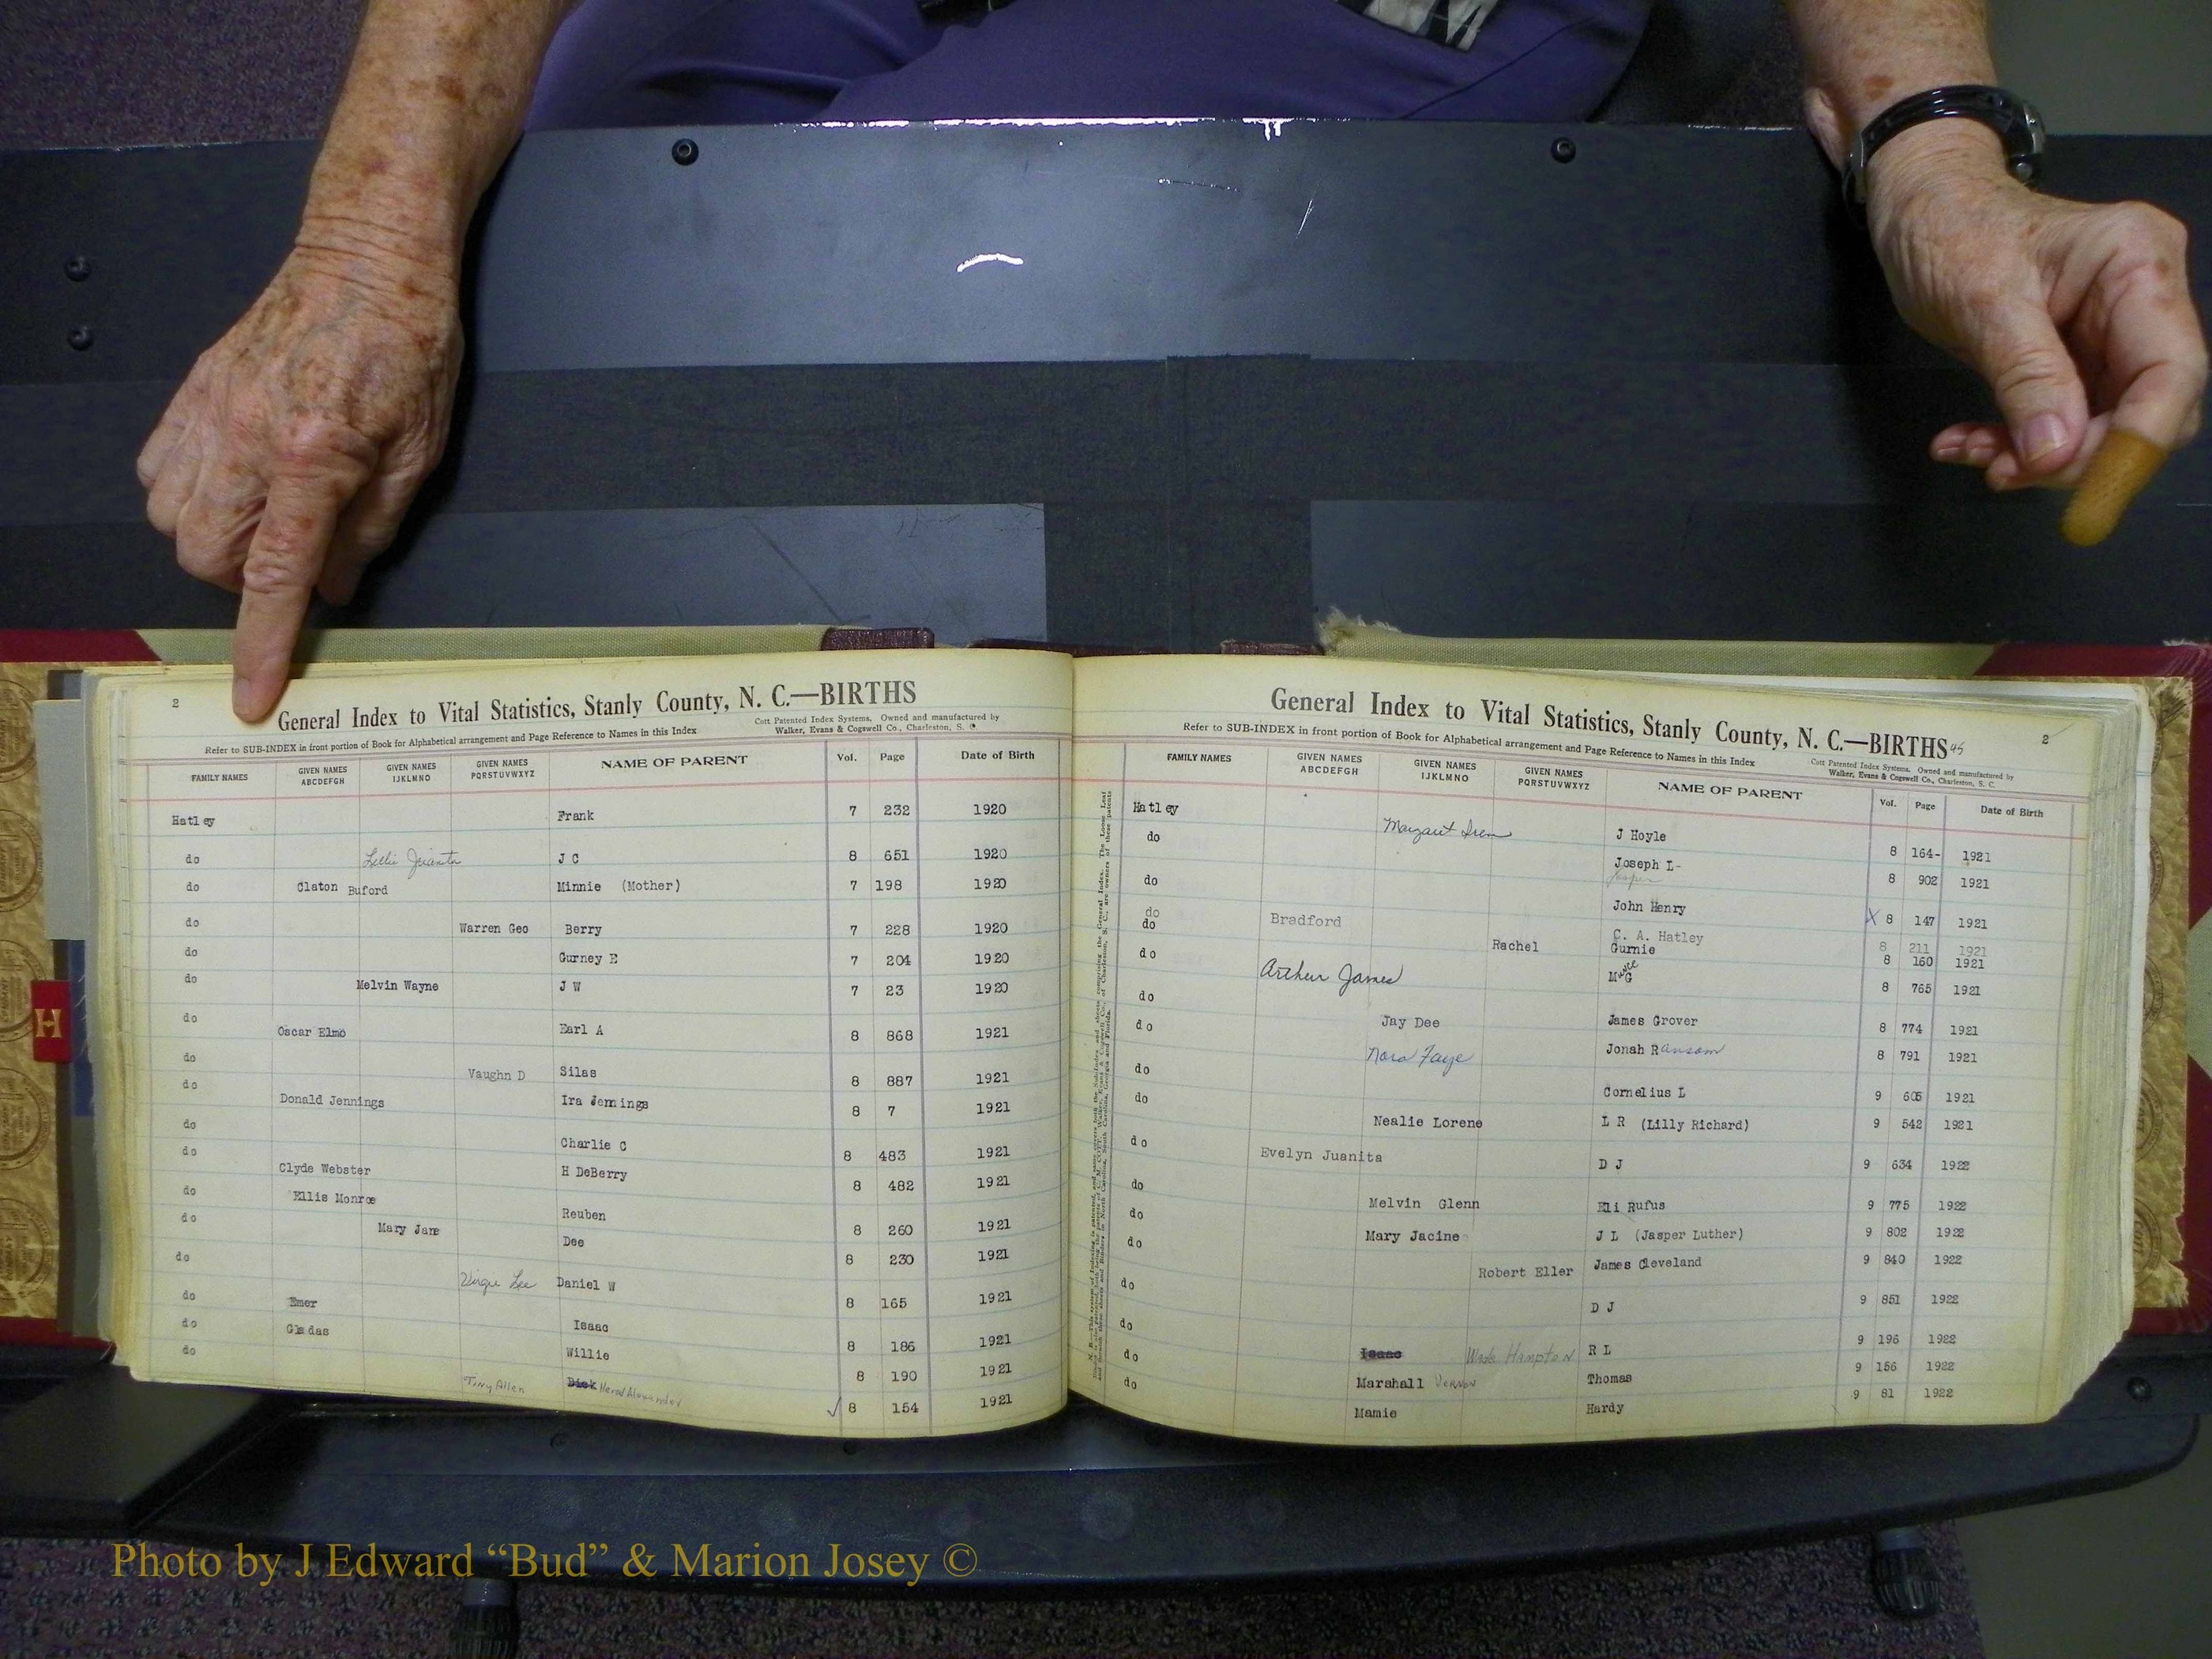 2
General Index to Vital Statistics, Stanly County, N. C.—BIRTHS
Refer to SUB-INDEX in front portion of Book for Alphabetical arrangement and Page Reference to Names in this Index
Cott Patented Index Systems, Owned and manufactured by
Walker, Evans & Cogswell Co., Charleston, S. C.
FAMILY NAMES GIVEN NAMES ABCDEFGH GIVEN NAMES IJKLMNO GIVEN NAMES PQRSTUVWXYZ NAME OF PARENT Vol. Page Date of Birth
Hatley Frank 7 232 1920
do Juanita J C 8 651 1920
do Claton Buford Minnie (Mother) 7 198 1920
do Warren Geo Berry 7 228 1920
do Gurney E 7 204 1920
do Melvin Wayne J W 7 23 1920
do Oscar Elmo Earl A 8 868 1921
do Vaughn D Silas 8 887 1921
do Donald Jennings Ira Jennings 8 7 1921
do Charlie C 8 483 1921
do Clyde Webster H DeBerry 8 482 1921
do Ellis Monroe Reuben 8 260 1921
do Mary Jane Dee 8 230 1921
do Virgie Lee Daniel W 8 165 1921
do Emer Isaac 8 186 1921
do Gladas Willie 8 190 1921
do Allen Dick Alexander ✓ 8 154 1921
H
General Index to Vital Statistics, Stanly County, N. C.—BIRTHS 45
2
Refer to SUB-INDEX in front portion of Book for Alphabetical arrangement and Page Reference to Names in this Index
Cott Patented Index Systems, Owned and manufactured by
Walker, Evans & Cogswell Co., Charleston, S. C.
FAMILY NAMES GIVEN NAMES ABCDEFGH GIVEN NAMES IJKLMNO GIVEN NAMES PQRSTUVWXYZ NAME OF PARENT Vol. Page Date of Birth
Hatley Margaret J Hoyle 8 164- 1921
do Joseph L- Jasper 8 902 1921
do John Henry X 8 147 1921
do Bradford C. A. Hatley 8 211 1921
do Rachel Gurnie 8 160 1921
do Arthur James M G 8 765 1921
do Jay Dee James Grover 8 774 1921
do Nora Faye Jonah Ransom 8 791 1921
do Cornelius L 9 605 1921
do Nealie Lorene L R (Lilly Richard) 9 542 1921
do Evelyn Juanita D J 9 634 1922
do Melvin Glenn Eli Rufus 9 775 1922
do Mary Jacine J L (Jasper Luther) 9 802 1922
do Robert Eller James Cleveland 9 840 1922
do D J 9 851 1922
do Isaac Wade Hampton R L 9 196 1922
do Marshall Vernon Thomas 9 156 1922
do Mamie Hardy 9 81 1922
Photo by J Edward “Bud” & Marion Josey ©